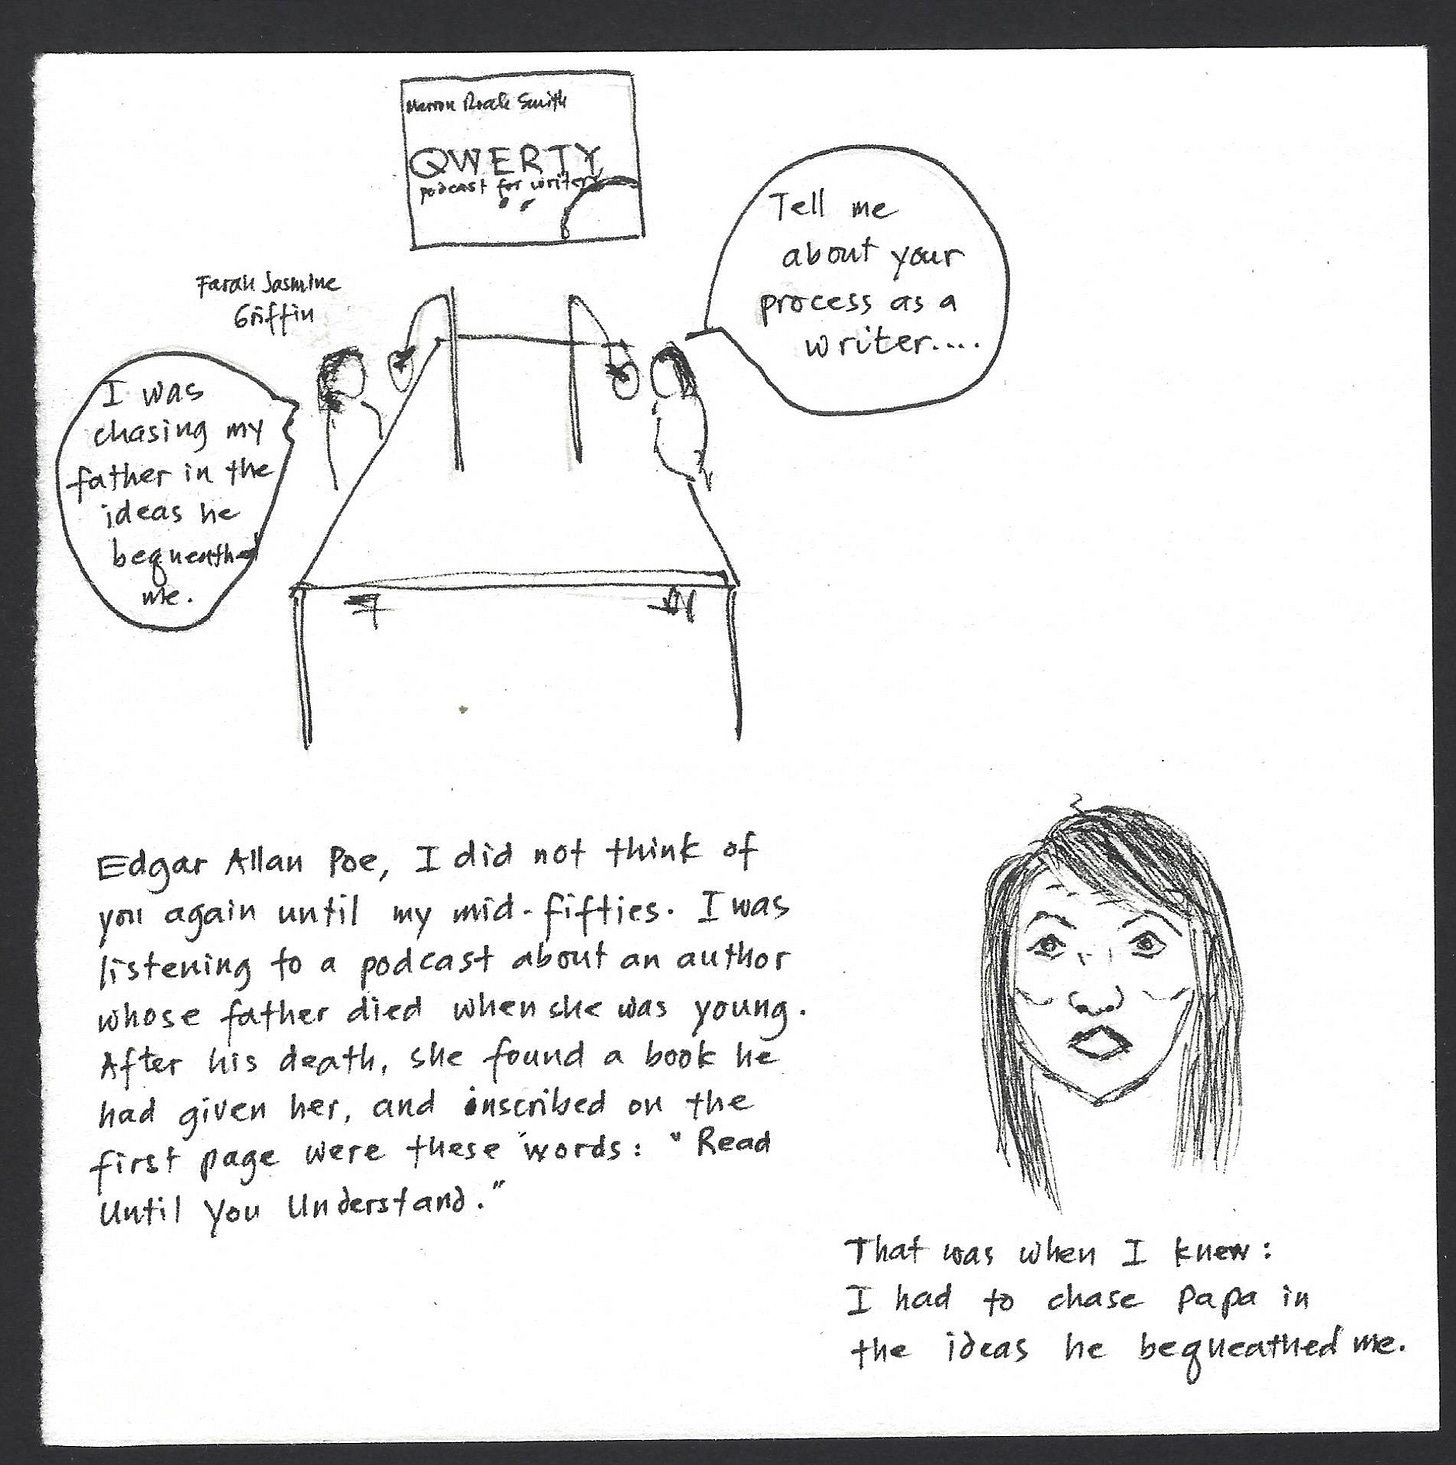 Marion Roach Smith
QWERTY
podcast for writers
Tell me
about your
process as a
writer....
Farah Jasmine
Griffin
I was
chasing my
father in the
ideas he
bequeathed
me.
Edgar Allan Poe, I did not think of
you again until my mid-fifties. I was
listening to a podcast about an author
whose father died when she was young.
After his death, she found a book he
had given her, and inscribed on the
first page were these words: "Read
Until You Understand."
That was when I knew:
I had to chase Papa in
the ideas he bequeathed me.